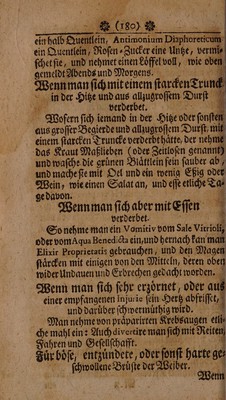 (180)
ein halb Quentlein, Antimonium Diaphoreticum
ein Quentlein, Rosen-Zucker eine Untze, vermi-
schet sie, und nehmet einen Löffel voll, wie oben
gemeldt Abends und Morgens.
Wenn man sich mit einem starcken Trunck
in der Hitze und aus allzugrossem Durst
verderbet.
Wofern sich iemand in der Hitze oder sonsten
aus grosser Begierde und allzugrossem Durst mit
einem starcken Trunck verderbt hätte, der nehme
das Kraut Maßlieben (oder Zeitlosen genannt)
und wasche die grünen Blättlein fein sauber ab,
und mache sie mit Oel und ein wenig Eßig oder
Wein, wie einen Salat an, und esse etliche Ta-
ge davon.
Wenn man sich aber mit Essen
verderbet.
So nehme man ein Vomitiv vom Sale Vitrioli,
oder vom Aqua Benedicta ein, und hernach kan man
Elixir Proprietatis gebrauchen, und den Magen
stärcken mit einigen von den Mitteln, deren oben
wider Undauen und Erbrechen gedacht worden.
Wenn man sich sehr erzörnet, oder aus
einer empfangenen Injurie sein Hertz abfrisset,
und darüber schwermüthig wird.
Man nehme von präparirten Krebsaugen etli-
che mahl ein: Auch divertire man sich mit Reiten,
Fahren und Gesellschafft.
Für böse, entzündete, oder sonst harte ge-
schwollene Brüste der Weiber.
Wenn